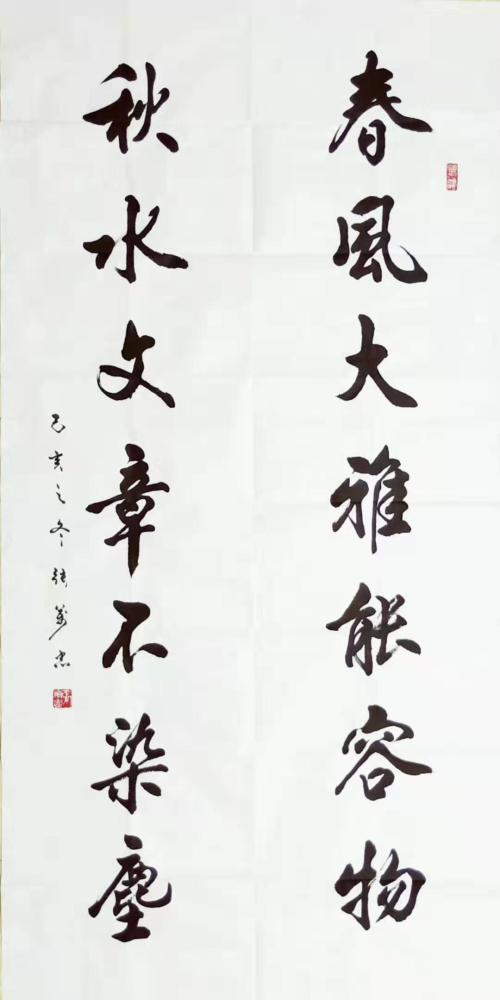 春風大雅能容物
秋水文章不染塵
己亥之冬張萬忠